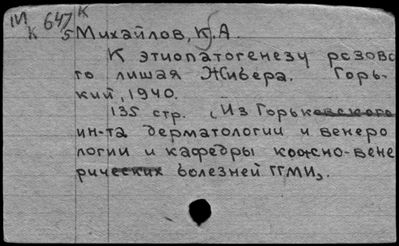 1И К 647/5
К
Михайлов, К.А.
К этиопатогенезу розово
го лишая Жибера. Горь-
кий, 1940.
135 стр. (Из Горьковского
ин-та дерматологии и венеро
логии и кафедры кожно-вене
рических болезней ГГМИ).